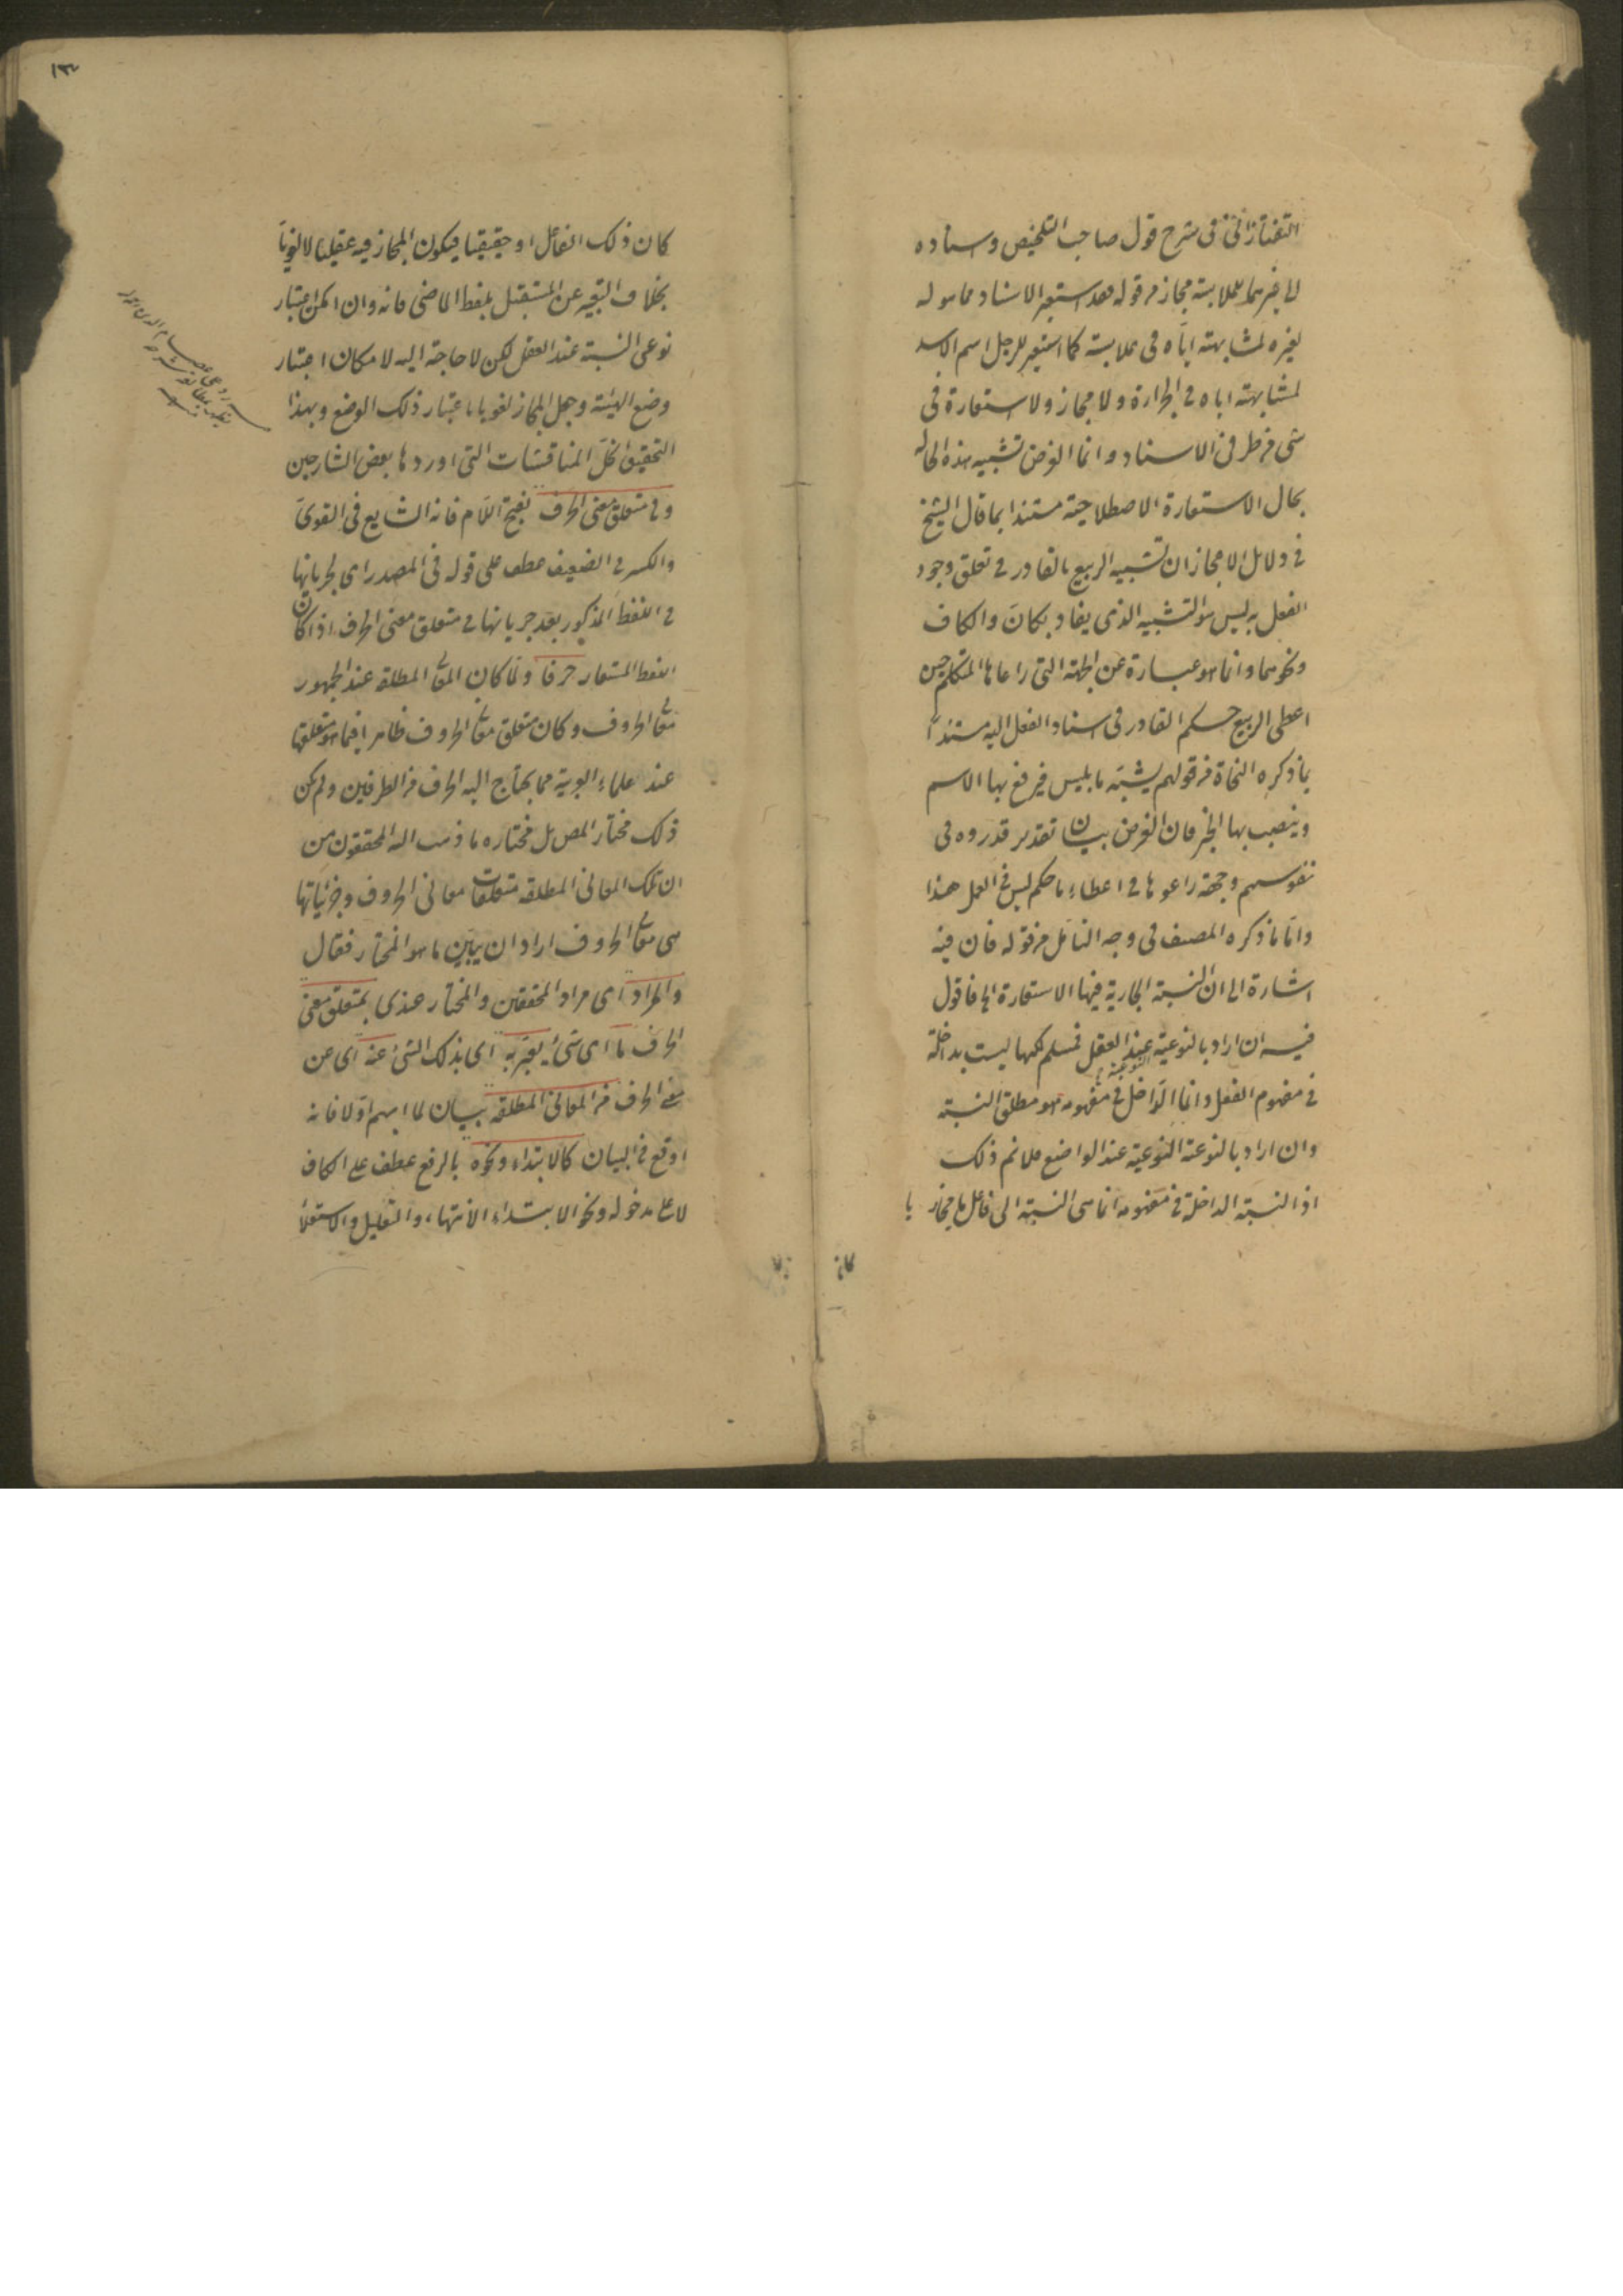 التفتازانى فى شرح قول صاحب التلخيص واسناده
الى غيرهما للملابسة مجاز من قوله فقد استعير الاسناد مما هو له
لغيره لمشابهته اياه فى ملابسة كما استعير للرجل اسم الاسد
لمشابهته اياه فى الجراءة ولا مجاز ولا استعارة فى
شى من طرفى الاسناد وانما الغرض تشبيه هذه الحالة
بحال الاستعارة الاصطلاحية مستندا بما قال الشيخ
فى دلايل الاعجاز ان تشبيه الربيع بالقادر فى تعلق وجود
الفعل به ليس هو التشبيه الذى يفاد بكان والكاف
ونحوهما وانما هو عبارة عن الجهة التى راعاها المتكلم حين
اعطى الربيع حكم القادر فى اسناد الفعل اليه مستندا
بما ذكره النحاة من قولهم يشبه ما بليس فيرفع بها الاسم
وينصب بها الخبر فان الغرض بيان تقدير قدروه فى
نفوسهم وجهة راعوها فى اعطاء ما حكم ليس فى العمل هذا
واما ما ذكره المصنف فى وجه التامل من قوله فان فيه
اشارة الى ان النسبة الجارية فيها الاستعارة الخ فاقول
فيه ان اراد بالنوعية عند العقل فمسلم لكنها ليست بداخلة
فى مفهوم الفعل وانما الداخل فى مفهومه هو مطلق النسبة
وان اراد بالنوعية النوعية عند الواضع فلا نم ذلك
اذ النسبة الداخلة فى مفهومه انما هى النسبة الى فاعل ما مجازيا
كان
كان ذلك الفاعل او حقيقيا فيكون المجاز فيه عقليا لا لغويا
بخلاف التعبير عن المستقبل بلفظ الماضى فانه وان امكن اعتبار
نوعى النسبة عند العقل لكن لا حاجة اليه لامكان اعتبار
وضع الهيئة وجعل المجاز لغويا باعتبار ذلك الوضع وبهذا
التحقيق انحل المناقشات التى اوردها بعض الشارحين
وفى متعلق معنى الحرف بفتح اللام فانه الشايع فى القوى
والكسر فى الضعيف عطف على قوله فى المصدر اى لجريانها
فى اللفظ المذكور بعد جريانها فى متعلق معنى الحرف اذا كان
اللفظ المستعار حرفا ولما كان المعانى المطلقة عند الجمهور
معانى الحروف وكان متعلق معانى الحروف ظاهرا فيما هو متعلقها
عند علماء العربية مما يحتاج اليه الحرف من الطرفين ولم يكن
ذلك مختار المص بل مختاره ما ذهب اليه المحققون من
ان تلك المعانى المطلقة متعلقات معانى الحروف وجزئياتها
هى معانى الحروف اراد ان يبين ما هو المختار فقال
والمراد اى مراد المحققين والمختار عندى بمتعلق معنى
الحرف ما اى شئ يعبر به اى بذلك الشئ عنه اى عن
معنى الحرف من المعانى المطلقة بيان لما ابهم اولا فانه
اوقع فى البيان كالابتداء ونحوه بالرفع عطف على الكاف
لا على مدخوله ونحو الابتداء الانتهاء والتعليل والاستعلا